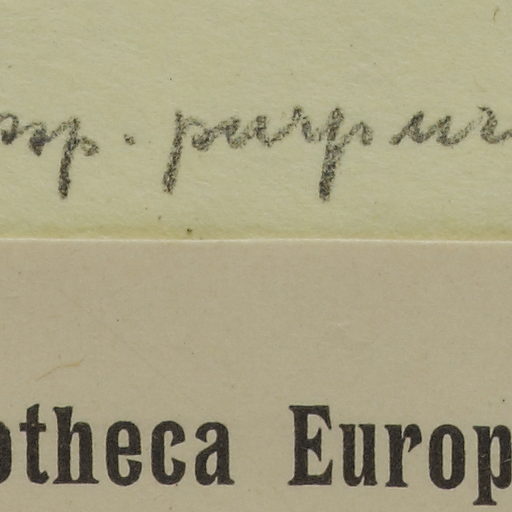 ssp. purpur
otheca Europ